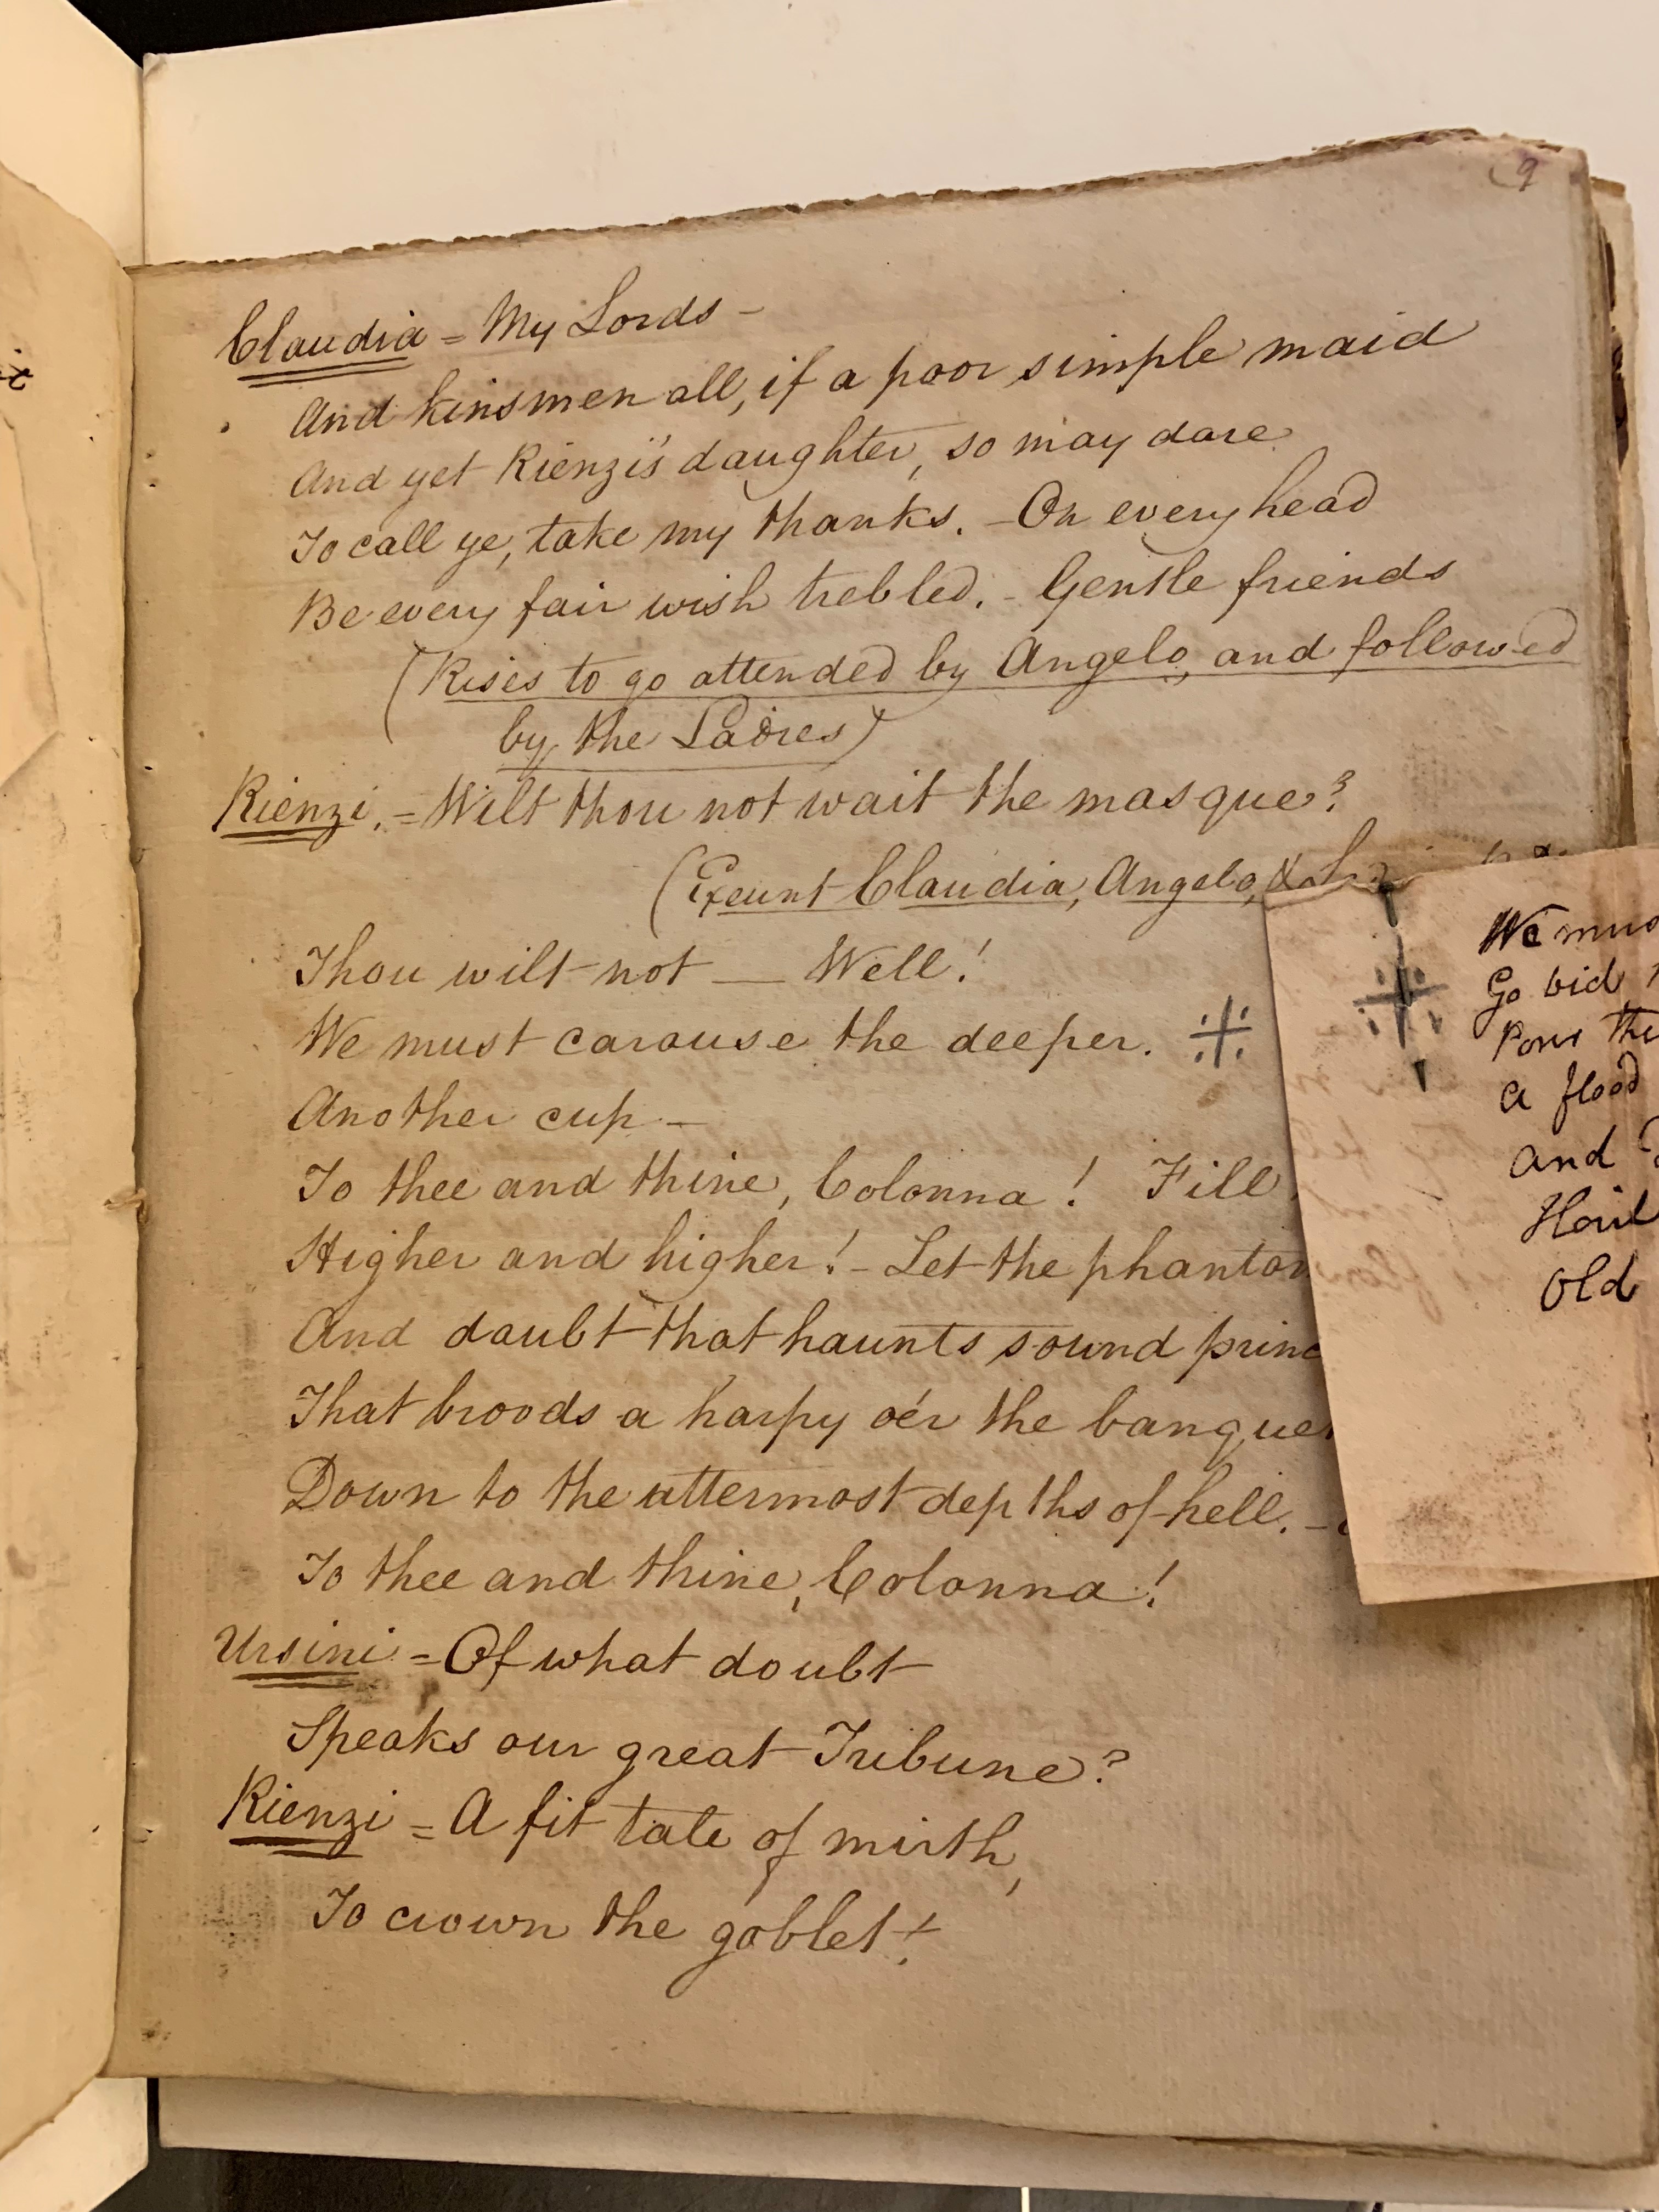 9
Claudia = My Lords -
And kinsmen all, if a poor simple maid
And yet Rienzi's daughter, so may dare
To call ye, take my thanks. - On every head
Be every fair wish trebled. - Gentle friends
(Rises to go attended by Angelo, and followed
by the Ladies)
Rienzi. = Wilt thou not wait the masque?
(Exeunt Claudia, Angelo, &
Thou wilt not — Well!
We must carouse the deeper. ※
Another cup -
To thee and thine, Colonna! Fill
Higher and higher! - Let the phantom
And doubt that haunts sound princ
That broods a harpy o'er the banquet
Down to the uttermost depths of hell. -
To thee and thine, Colonna!
Ursini = Of what doubt
Speaks our great Tribune?
Rienzi = A fit tale of mirth,
To crown the goblet!
※ We mus
Go bid
Pour the
A flood
And
Hail
Old